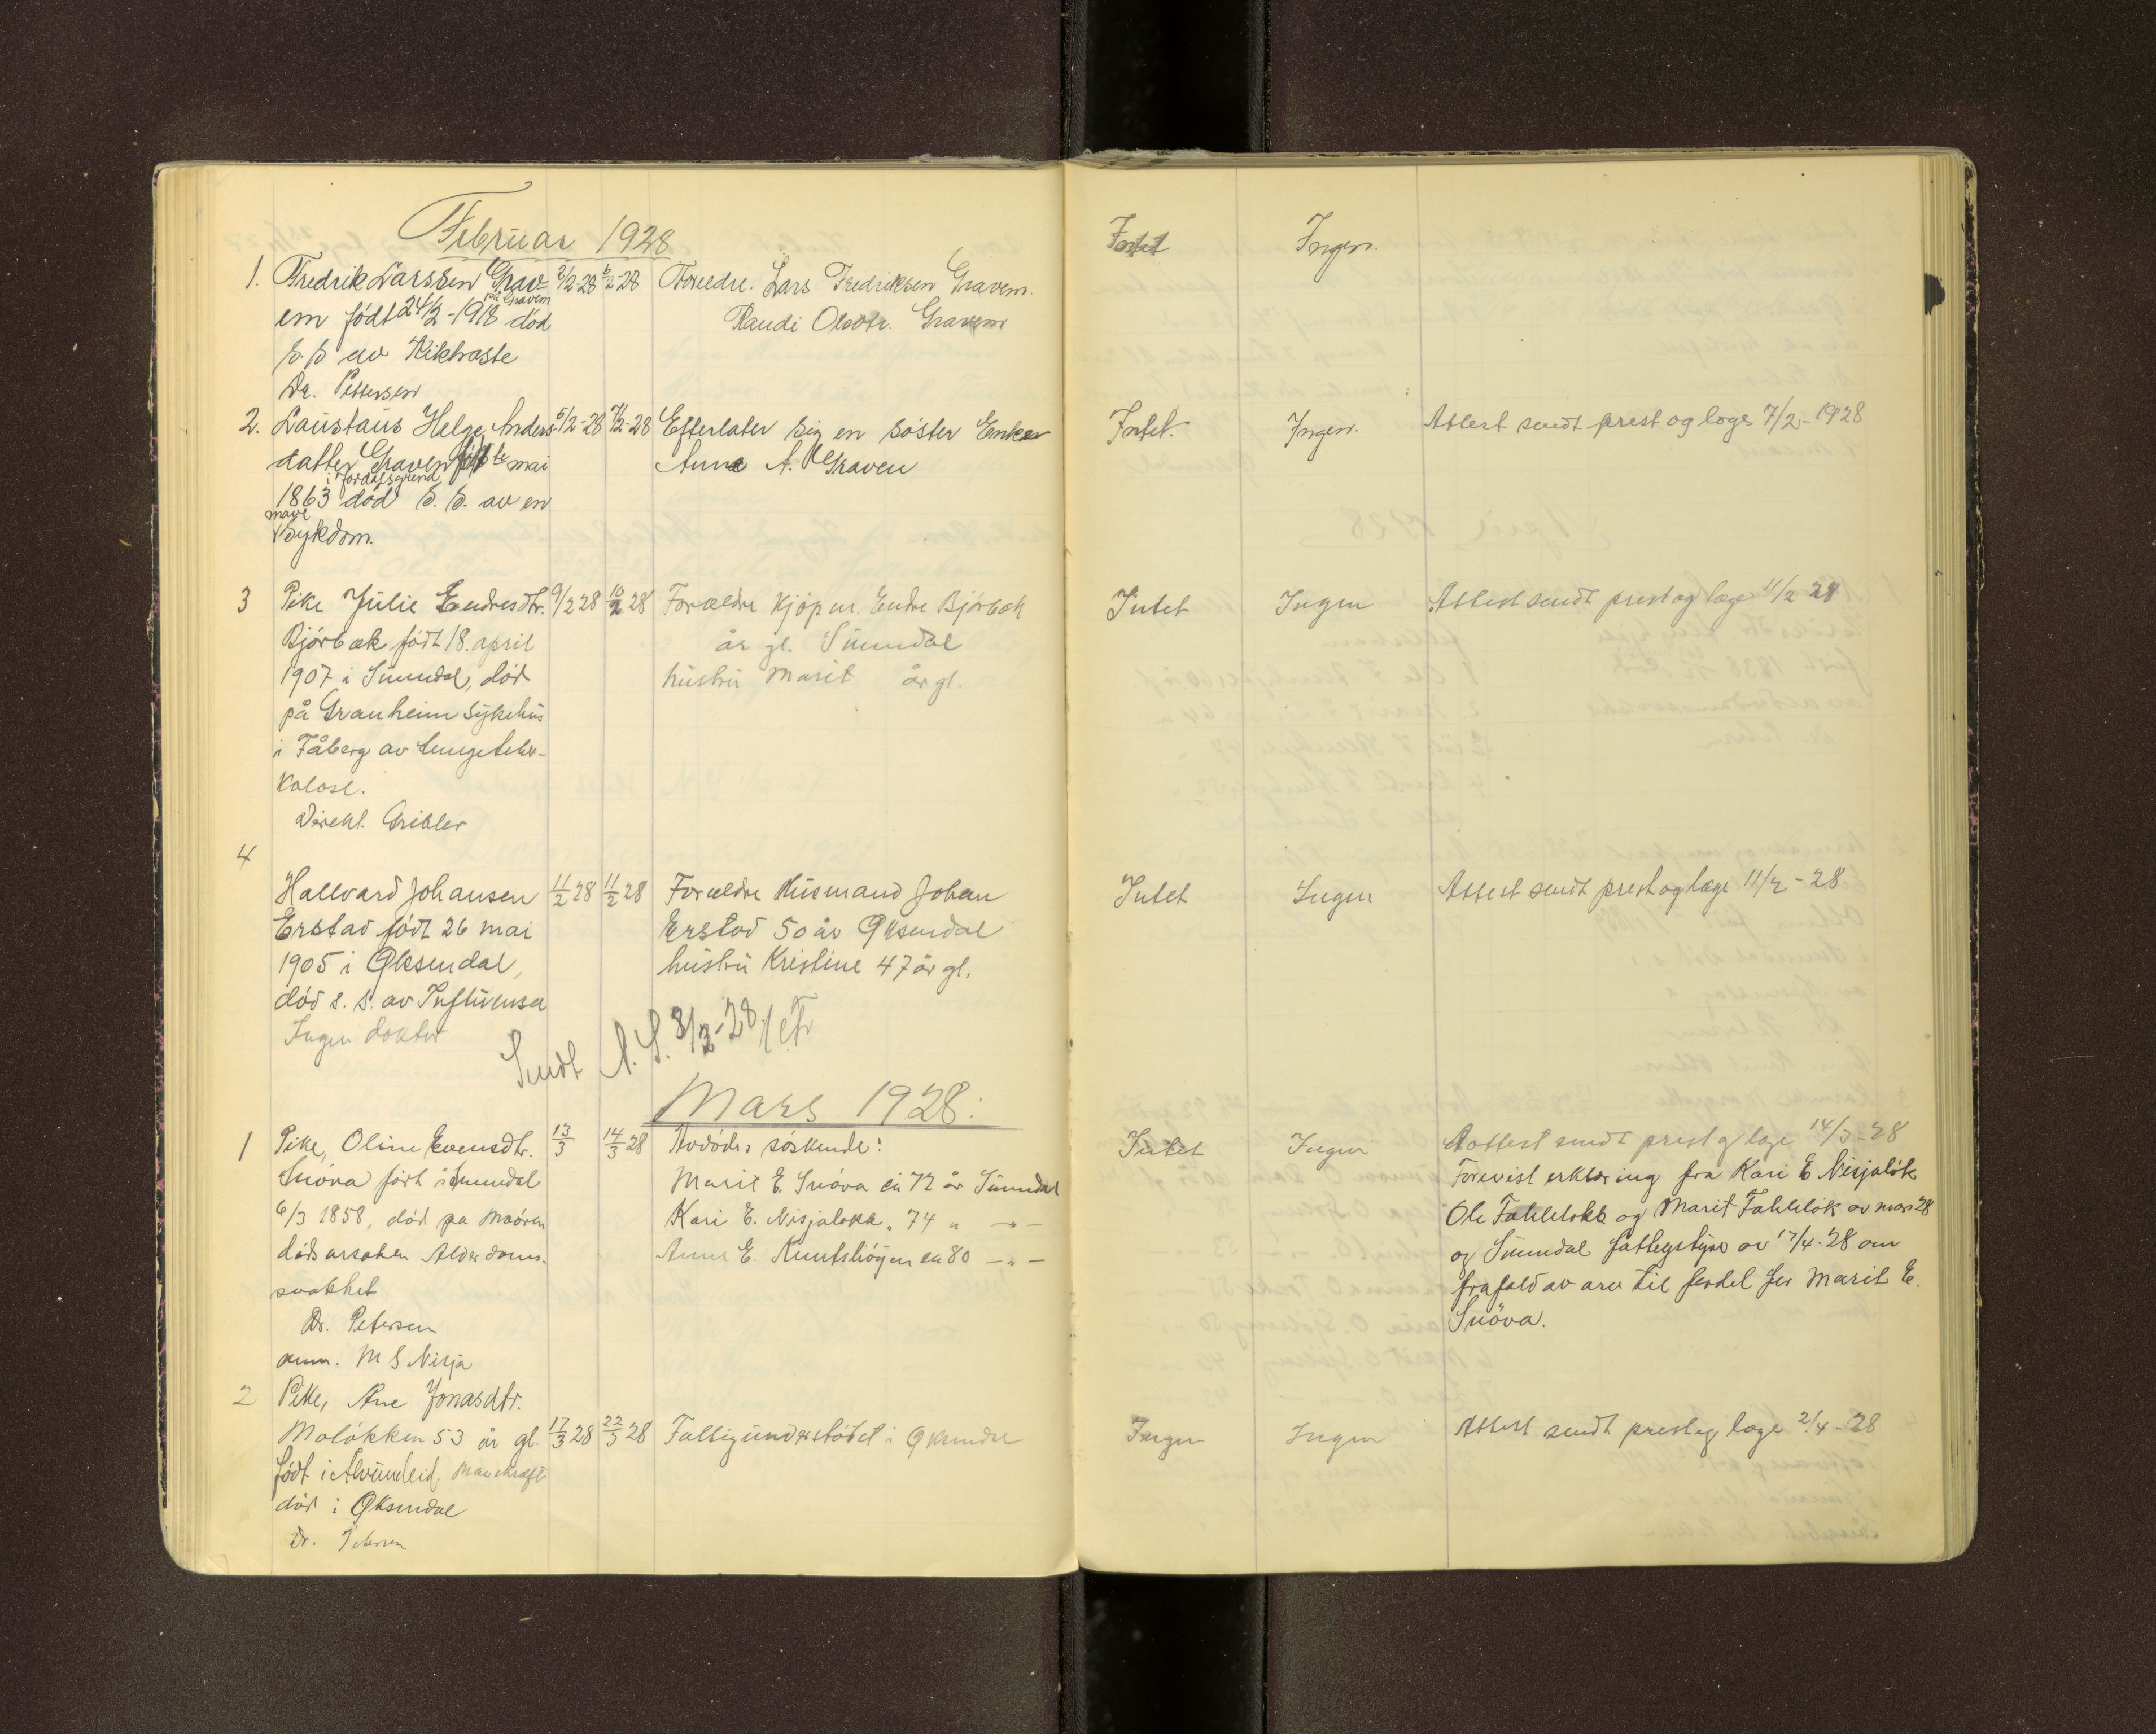 Februar 1928
1. Fredrik Larssen Grav- 2/2-28 6/2-28 Foreldre. Lars Fredriksen Gravem. Intet Ingen.
em født 24/2-1918 død Randi Olsdtr. Gravem
på Gravem
s. s. av Kikhoste
Dr. Pettersen
2. Laustaus Helge Anders- 5/2-28 7/2-28 Efterlater sig en søster Enke Intet. Ingen. Attest sendt prest og læge 7/2-1928
datter Graven født mai Anne A. Graven
i Jordalsgrend
1863 død s. s. av en
mave
sykdom.
3 Pike Julie Endresdtr. 9/2 28 10/2 28 Forældre Kjøpm. Endre Bjørbæk Intet Ingen Attest sendt prest og læge 11/2 28
Bjørbæk født 18. april år gl. Sunndal
1907 i Sunndal, død hustru Marit år gl.
på Granheim sykehus
i Fåberg av lungetuber-
kolose.
Direkt. Gribler
4
Hallvard Johansen 11/2 28 11/2 28 Forældre Husmand Johan Intet Ingen Attest sendt prest og læge 11/2-28
Erstad født 26 mai Erstad 50 år Øksendal
1905 i Øksendal, hustru Kristine 47 år gl.
død s. s. av Influensa
Ingen doktor
Sendt
Mars 1928.
1 Pike, Oline Evensdtr. 13/3 14/3 28 Avdødes søskende: Intet Ingen Attest sendt prest og læge 14/3-28
Snøva født i Sunndal Marit E. Snøva ca 72 år Sunndal Forevist erklæring fra Kari E Nisjaløk
6/3 1858, død på Moøren Kari E. Nisjaløkk " 74 " — " — Ole Fahleløkk og Marit Fahleløk av mars 28
dødsarsaken Alderdoms- Anne E. Kuntshögen ca 80 — " — og Sunndal fattegstyre av 17/4-28 om
svakhet frafald av arv til fordel for Marit E.
Dr. Petersen Snöva.
anm. M S Nisja
2 Pike, Ane Jonasdtr.
Moløkken 53 år gl. 17/3 28 22/3 28 Fattigunderstøtet i Øksendal Ingen Ingen Attest sendt prest og læge 2/4-28
født i Alvundeid Mavekræft
død i Øksendal
Dr. Petersen